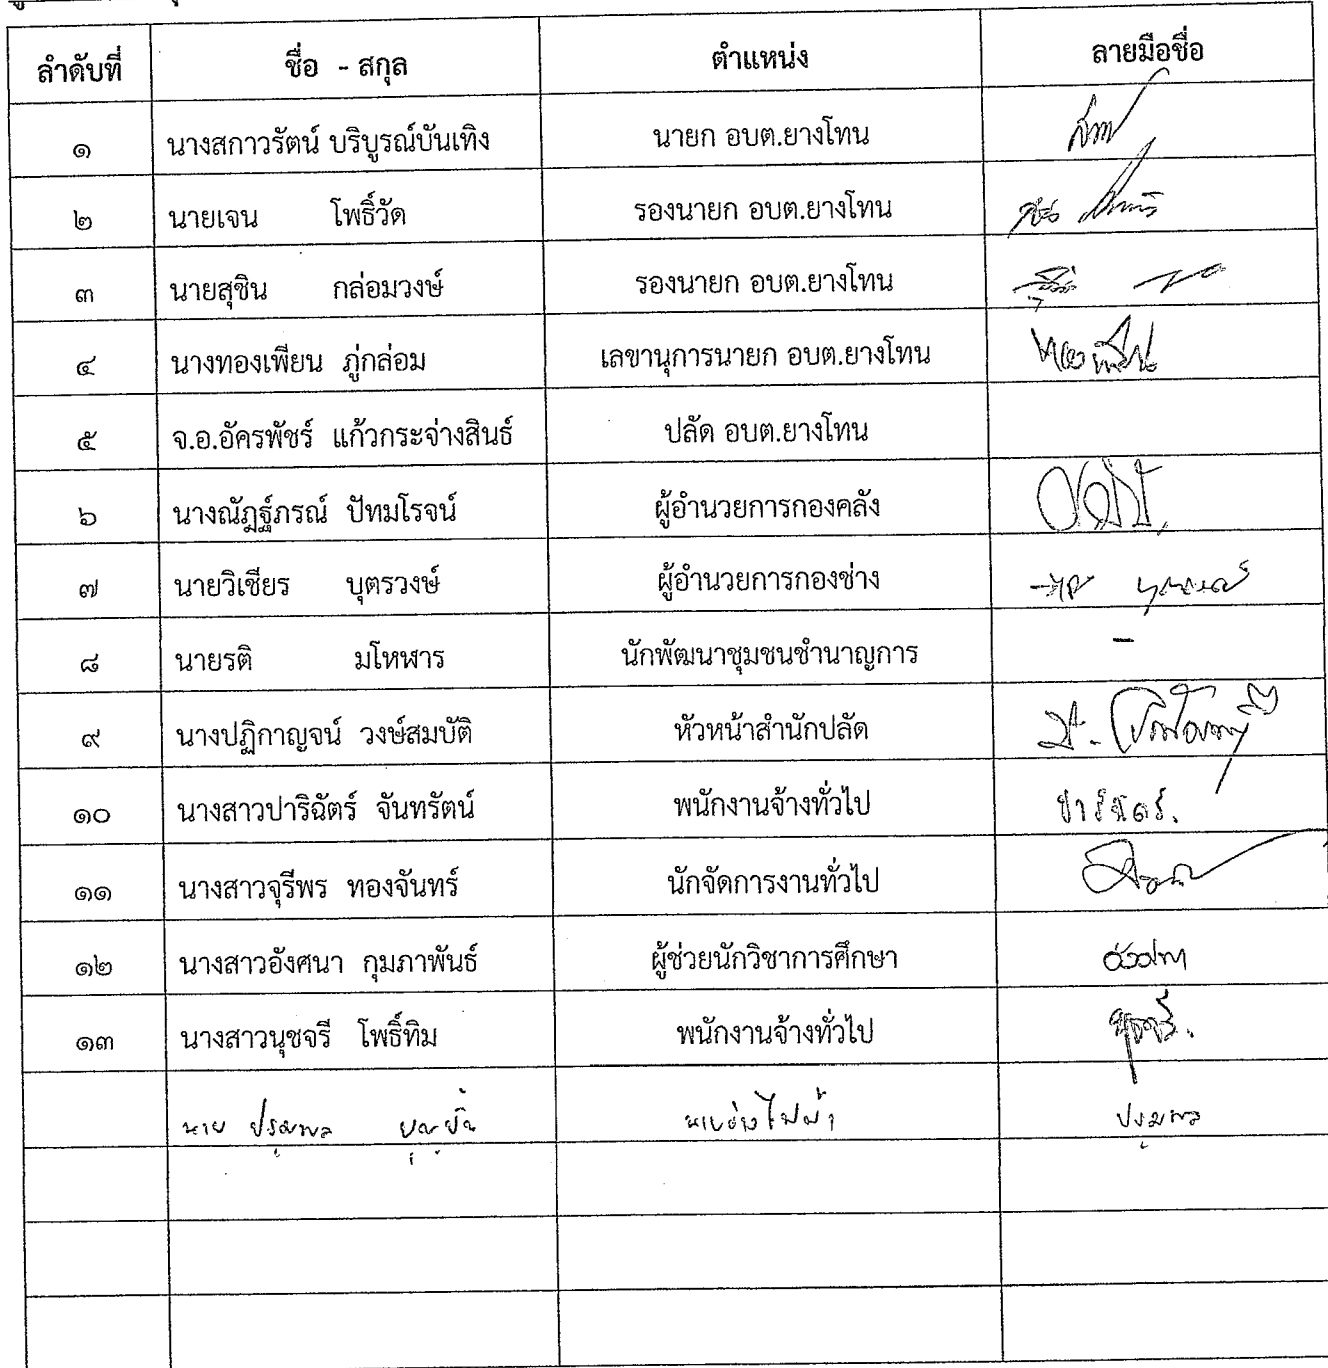 ลำดับที่ ชื่อ - สกุล ตำแหน่ง ลายมือชื่อ
๑ นางสกาวรัตน์ บริบูรณ์บันเทิง นายก อบต.ยางโทน
๒ นายเจน โพธิ์วัด รองนายก อบต.ยางโทน
๓ นายสุชิน กล่อมวงษ์ รองนายก อบต.ยางโทน
๔ นางทองเพียน ภู่กล่อม เลขานุการนายก อบต.ยางโทน ทองเพียน
๕ จ.อ.อัครพัชร์ แก้วกระจ่างสินธ์ ปลัด อบต.ยางโทน
๖ นางณัฎฐ์ภรณ์ ปัทมโรจน์ ผู้อำนวยการกองคลัง
๗ นายวิเชียร บุตรวงษ์ ผู้อำนวยการกองช่าง
๘ นายรติ มโหฬาร นักพัฒนาชุมชนชำนาญการ -
๙ นางปฏิกาญจน์ วงษ์สมบัติ หัวหน้าสำนักปลัด
๑๐ นางสาวปาริฉัตร์ จันทรัตน์ พนักงานจ้างทั่วไป ปาริฉัตร์.
๑๑ นางสาวจุรีพร ทองจันทร์ นักจัดการงานทั่วไป
๑๒ นางสาวอังศนา กุมภาพันธ์ ผู้ช่วยนักวิชาการศึกษา อังศนา
๑๓ นางสาวนุชจรี โพธิ์ทิม พนักงานจ้างทั่วไป นุชจรี.
นาย นายช่างไฟฟ้า